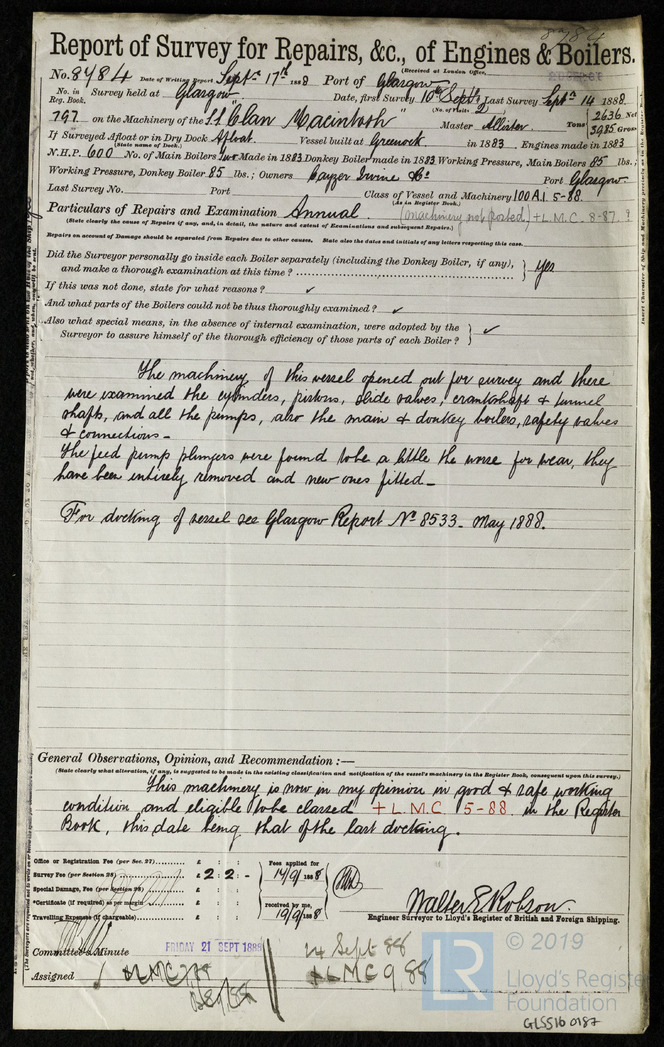 Report of Survey for Repairs, &c., of Engines & Boilers.
(Received at London Office,
No. 8484 Date of Writing Report Septr 17th 1888 Port of Glasgow
No. in Reg. Book. Survey held at Glasgow Date, first Survey 10th Septr Last Survey Septr 14 1888
(No. of Visits 2)
797 on the Machinery of the S.S. Clan Macintosh Master Allister Tons 2636 Net 3985 Gross
If Surveyed Afloat or in Dry Dock Afloat. Vessel built at Greenock in 1883 Engines made in 1883
(State name of Dock.)
N.H.P. 600 No. of Main Boilers Two Made in 1883 Donkey Boiler made in 1883 Working Pressure, Main Boilers 85 lbs.;
Working Pressure, Donkey Boiler 85 lbs.; Owners Cayzer Irvine & Co Port Glasgow
Last Survey No. Port Class of Vessel and Machinery 100A.1. 5-88.
(As in Register Book.)
Particulars of Repairs and Examination Annual. (Machinery not posted.) + L.M.C. 8-87. ?
(State clearly the cause of Repairs if any, and, in detail, the nature and extent of Examinations and subsequent Repairs.)
Repairs on account of Damage should be separated from Repairs due to other causes. State also the dates and initials of any letters respecting this case.
Did the Surveyor personally go inside each Boiler separately (including the Donkey Boiler, if any),
and make a thorough examination at this time? } Yes
If this was not done, state for what reasons? ✓
And what parts of the Boilers could not be thus thoroughly examined? ✓
Also what special means, in the absence of internal examination, were adopted by the
Surveyor to assure himself of the thorough efficiency of those parts of each Boiler? } ✓
The machinery of this vessel opened out for survey and there
were examined the cylinders, pistons, slide valves, crankshaft & tunnel
shafts, and all the pumps, also the main & donkey boilers, safety valves
& connections -
The feed pump plungers were found to be a little the worse for wear, they
have been entirely removed and new ones fitted -
For docking of vessel see Glasgow Report No 8533 - May 1888.
General Observations, Opinion, and Recommendation :—
(State clearly what alteration, if any, is suggested to be made in the existing classification and notification of the vessel's machinery in the Register Book, consequent upon this survey.)
This machinery is now in my opinion in good & safe working
condition and eligible to be classed + L.M.C. 5-88. in the Register
Book, this date being that of the last docking.
Office or Registration Fee (per Sec. 27) £ : :
Survey Fee (per Section 28) £ 2 : 2 : -
Special Damage, Fee (per Section 28) £ : :
*Certificate (if required) as per margin £ : :
Travelling Expenses (if chargeable) £ : :
Fees applied for 14/9/1888
received by me, 19/9/1888
Walter E Robson
Engineer Surveyor to Lloyd's Register of British and Foreign Shipping.
Committee's Minute FRIDAY 21 SEPT 1888 14 Sept 88
Assigned + LMC 9 88
© 2019
LR
Lloyd's Register
Foundation
GLSS16 0187